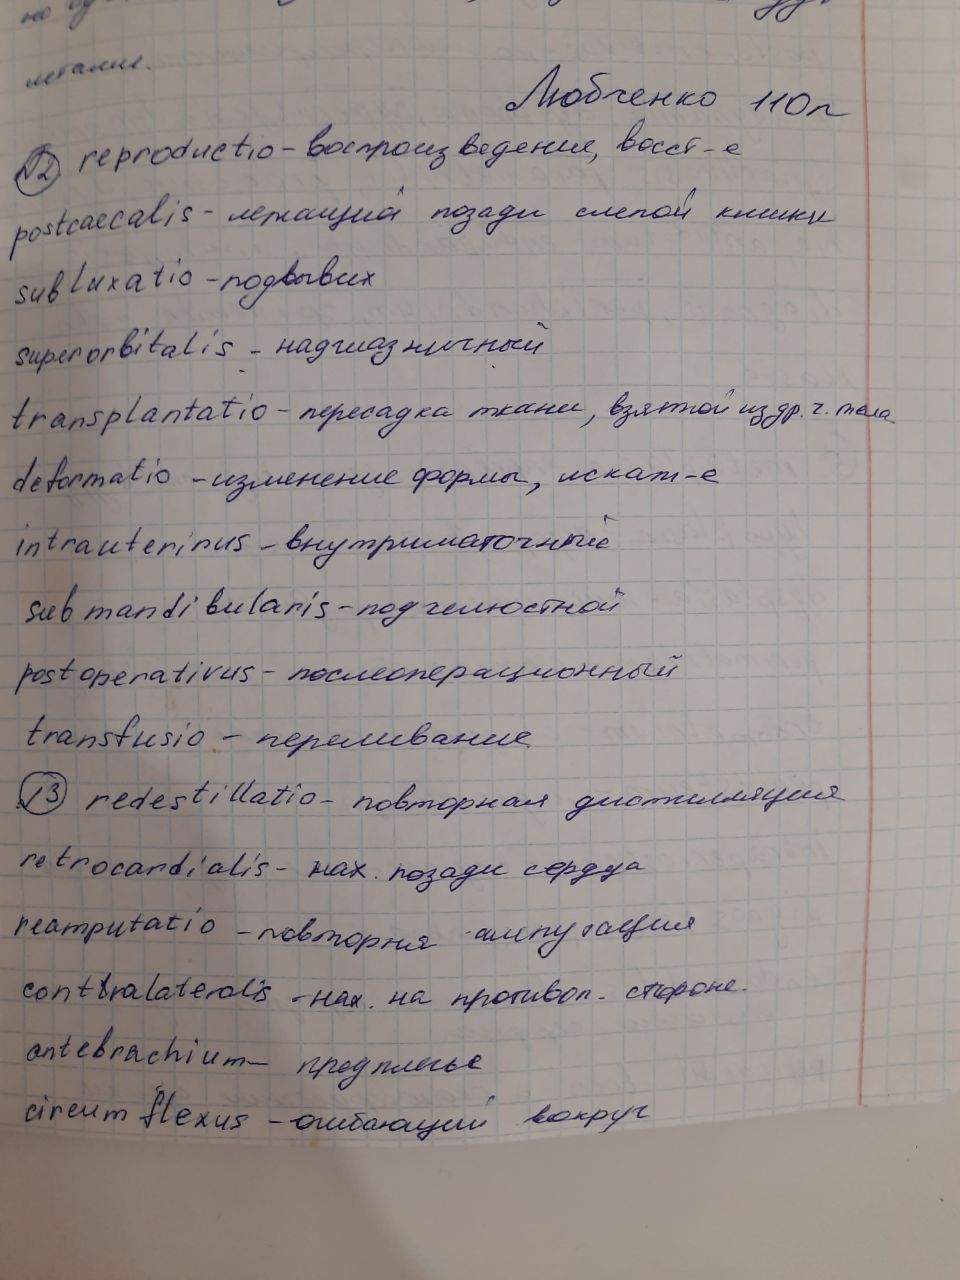 металле.
Любченко 110л
12 reproductio - воспроизведение, восст-е
postcaecalis - лежащий позади слепой кишки
subluxatio - подвывих
superorbitalis - надглазничный
transplantatio - пересадка ткани, взятой из др. ч. тела
deformatio - изменение формы, искаж-е
intrauterinus - внутриматочный
submandibularis - подчелюстной
postoperativus - послеоперационный
transfusio - переливание
13 redestillatio - повторная дистилляция
retrocardialis - нах. позади сердца
reamputatio - повторня ампутация
contralateralis - нах. на противоп. стороне.
antebrachium - предплечье
circumflexus - огибающий вокруг